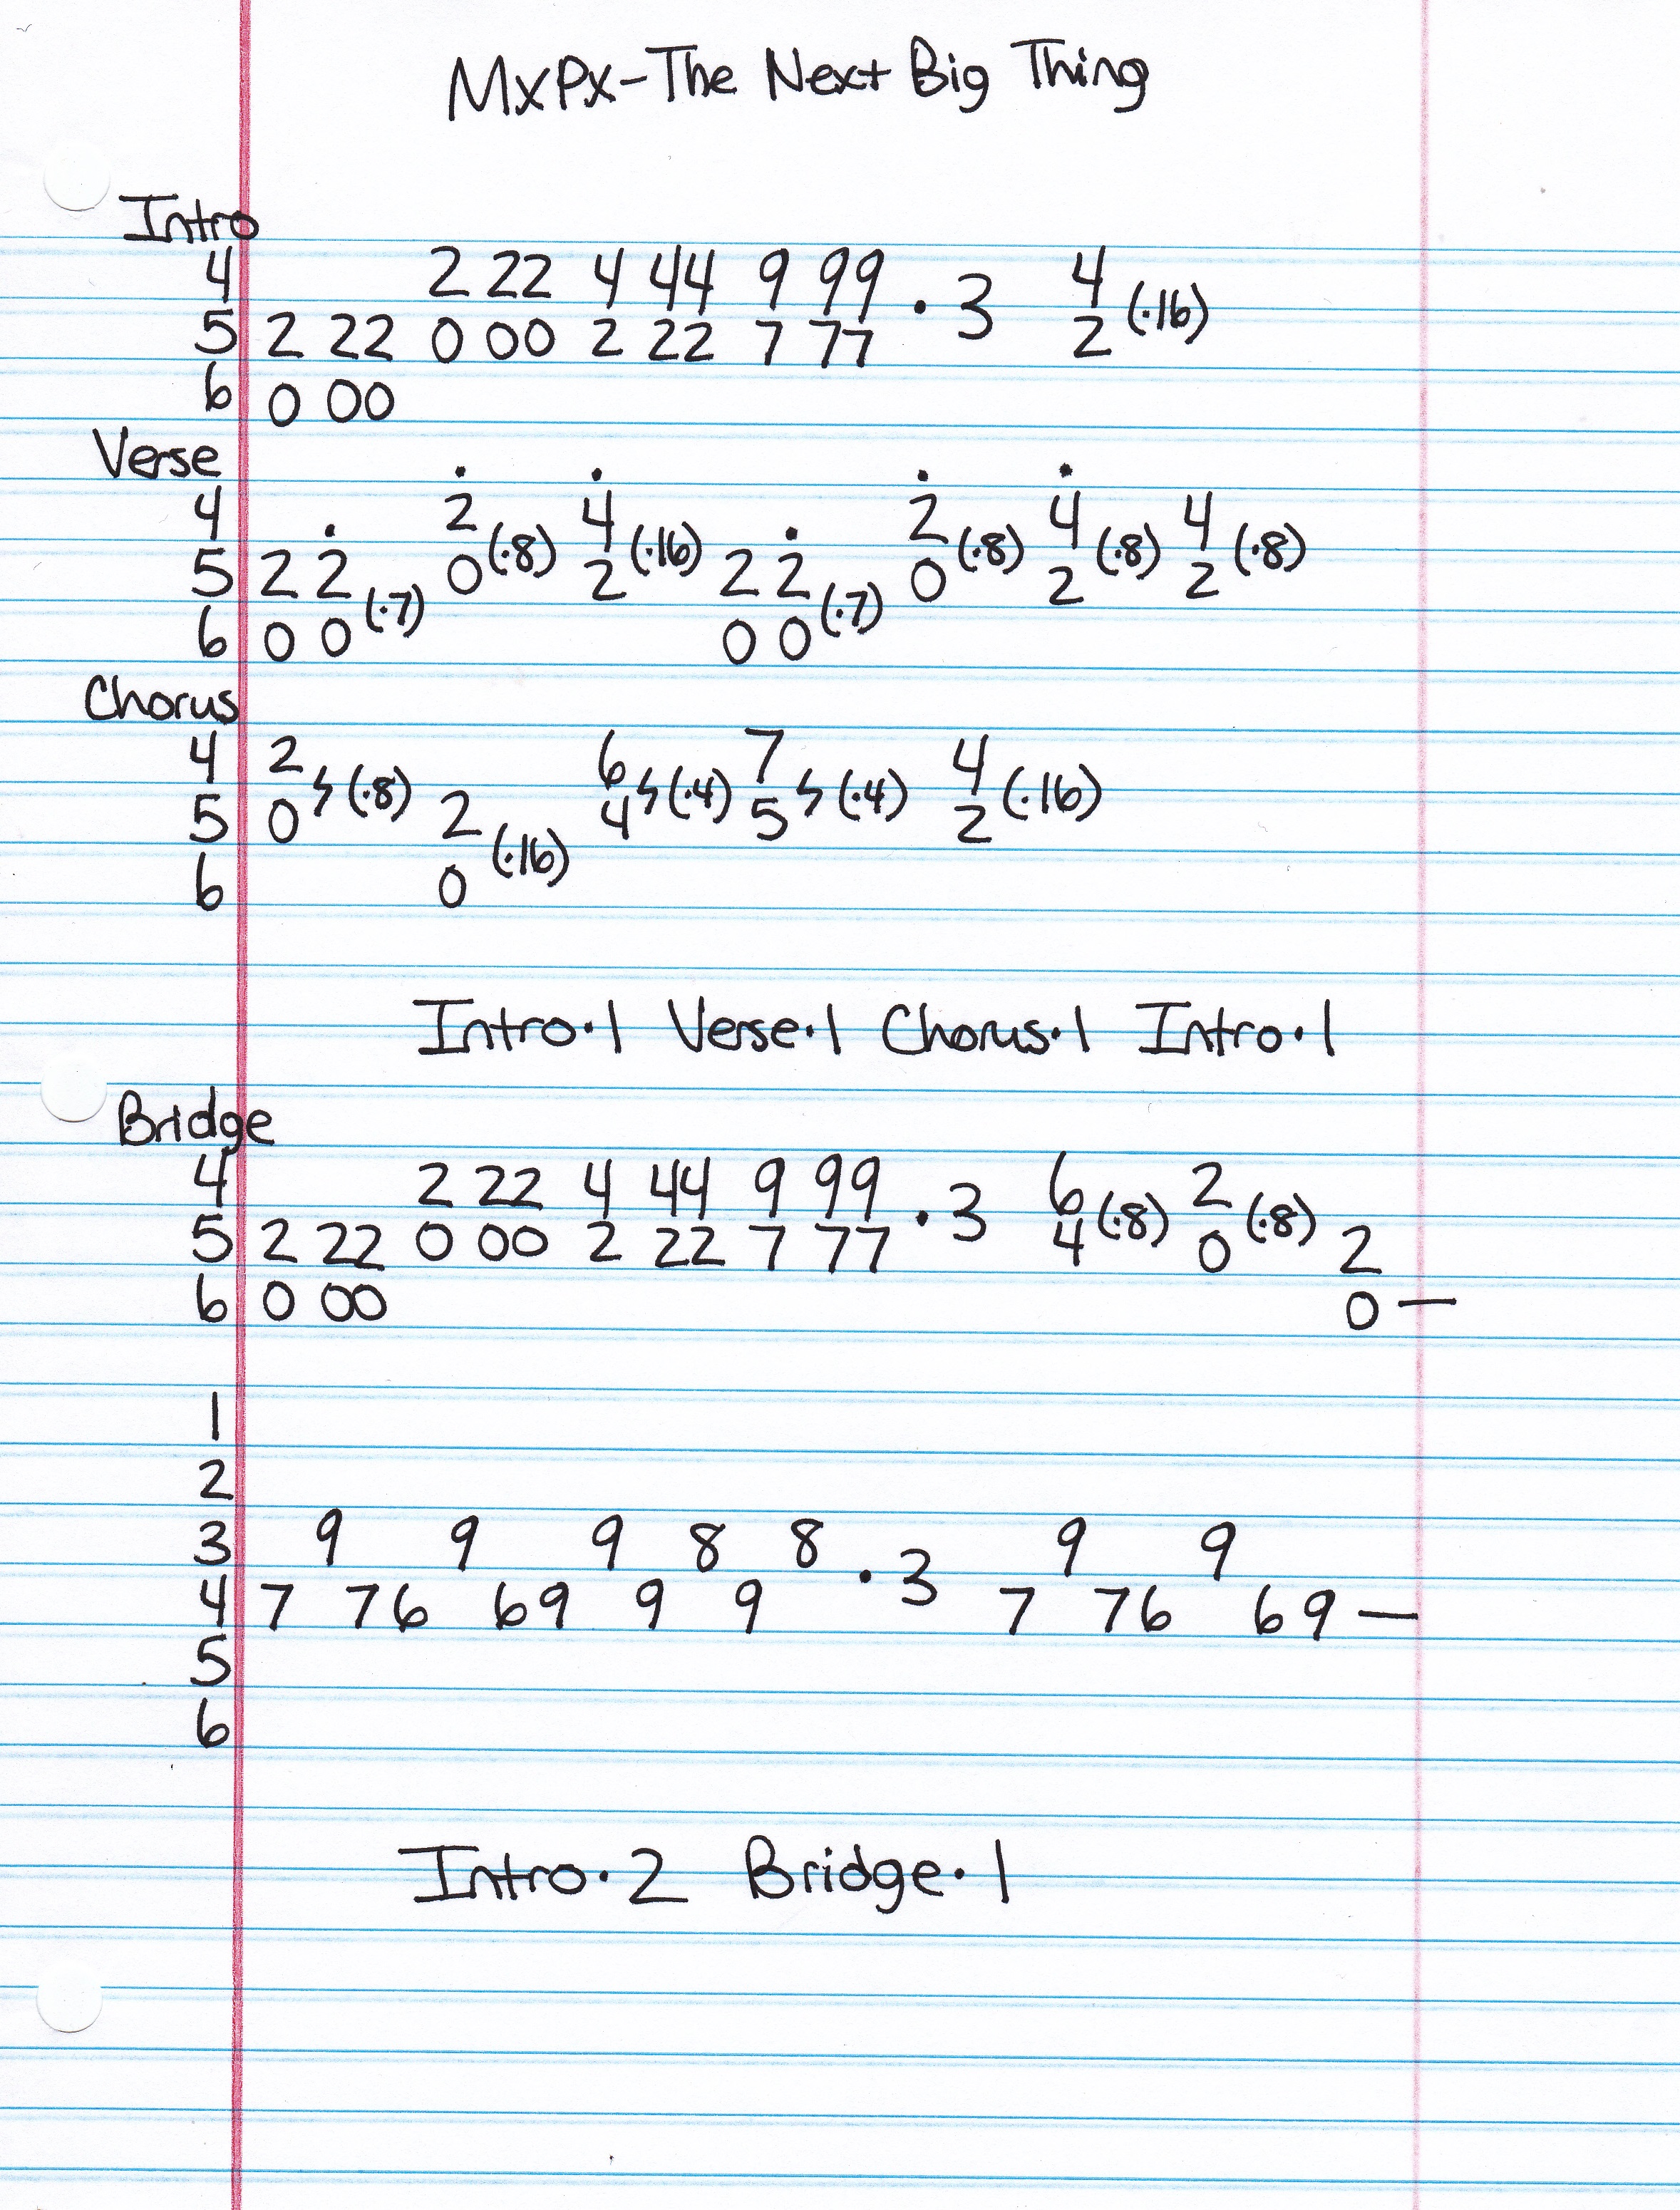 MxPx-The Next Big Thing
Intro
4 2 22 4 44 9 99 · 3 4
5 2 22 0 00 2 22 7 77 2 (·16)
6 0 00
Verse
4 2 4 2 4 4
5 2 2 0 (·8) 2 (·16) 2 2 0 (·8) 2 (·8) 2 (·8)
6 0 0 (·7) 0 0 (·7)
Chorus
4 2 6 7 4
5 0 ϟ (·8) 2 4 ϟ (·4) 5 ϟ (·4) 2 (·16)
6 0 (·16)
Intro·1 Verse·1 Chorus·1 Intro·1
Bridge
4 2 22 4 44 9 99 · 3 6 2
5 2 22 0 00 2 22 7 77 4 (·8) 0 (·8) 2
6 0 00 0 —
1
2
3 9 9 9 8 8 · 3 9 9
4 7 76 69 9 9 7 76 69 —
5
6
Intro·2 Bridge·1